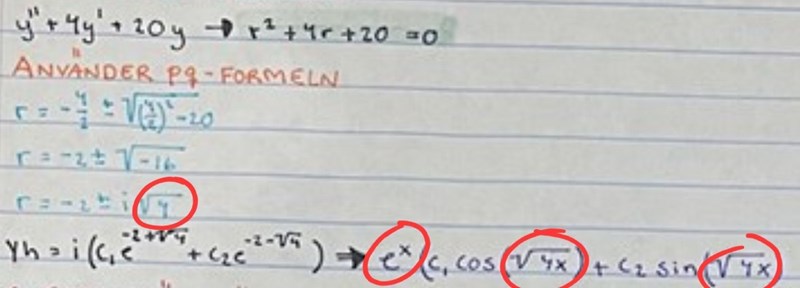 y" + 4y' + 20y → r² + 4r + 20 = 0
ANVÄNDER pq-FORMELN
r = -4/2 ± √((4/2)² - 20)
r = -2 ± √-16
r = -2 ± i√4
yh = i(c₁e^(-2+√4) + c₂e^(-2-√4)) → eˣ(c₁ cos(√4x) + c₂ sin(√4x)